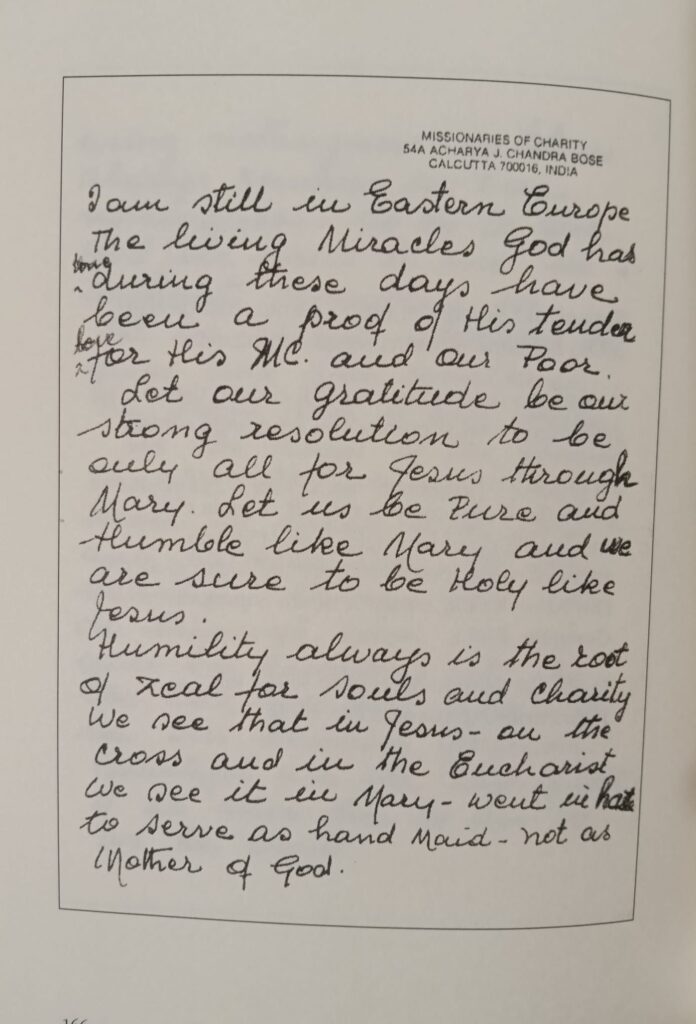 MISSIONARIES OF CHARITY
54A ACHARYA J. CHANDRA BOSE
CALCUTTA 700016, INDIA
I am still in Eastern Europe
The living Miracles God has
done
during these days have
been a proof of His tender
love
for His MC. and our Poor.
Let our gratitude be our
strong resolution to be
only all for Jesus through
Mary. Let us be Pure and
Humble like Mary and we
are sure to be Holy like
Jesus.
Humility always is the root
of zeal for souls and charity
We see that in Jesus - on the
Cross and in the Eucharist
We see it in Mary - went in haste
to serve as hand Maid - not as
Mother of God.
166